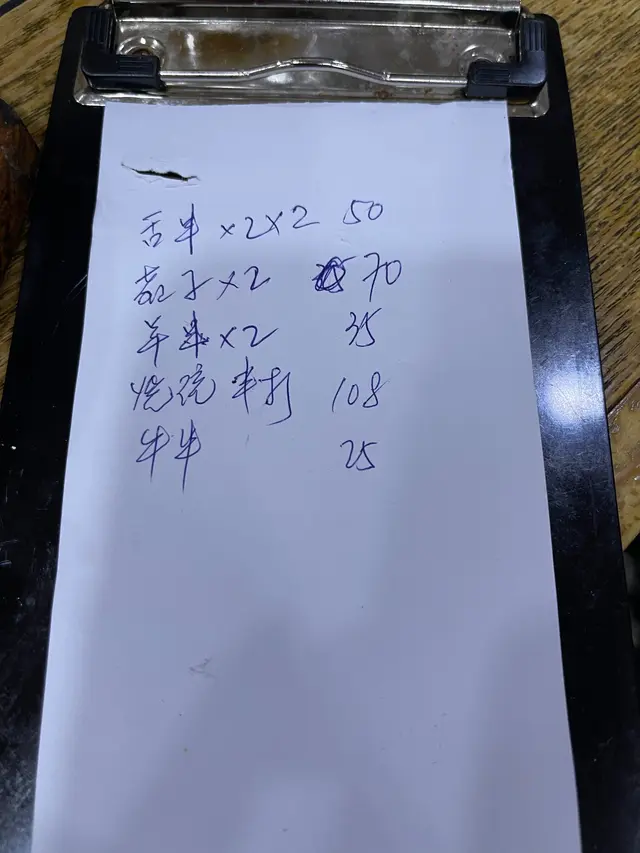 舌串×2×2 50
茄子×2 70
羊串×2 35
烧 半打 108
牛串 25